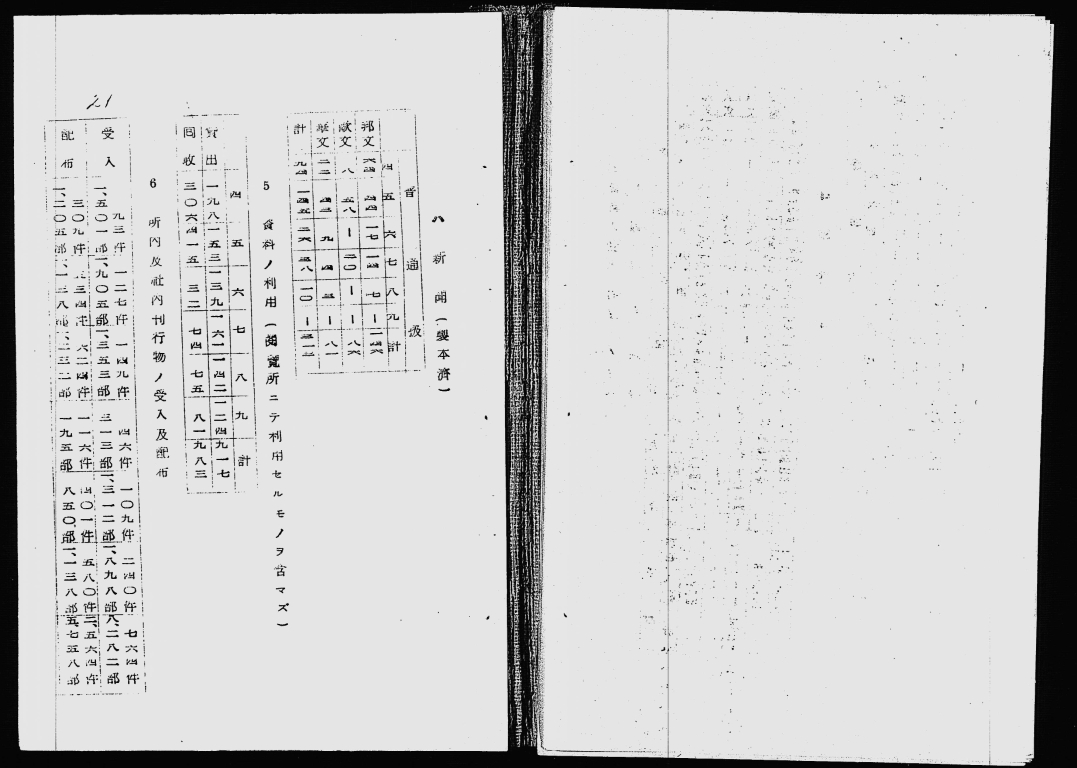 ハ 新聞(製本済)
普通扱
四 五 六 七 八 九 計
邦文 六四 四四 一七 一四 七 一 一四六
欧文 八 五八 一 二〇 一 一 八六
華文 二二 四三 九 四 三 一 八一
計
5 資料ノ利用(閲覧所ニテ利用セルモノヲ含マズ)
四 五 六 七 八 九 計
貸出 一九八 一五三 一三九 一六一 一四二 一二四 九一七
回收 三〇六 四一五 三二 七四 七五 八一 九八三
6 所内及社内刊行物ノ受入及配布
受入 九三件 一二七件 一四九件 四六件 一〇九件 二四〇件 七六四件
一、五〇一部 一、九〇五部 一、三五三部 三一三部 一、三一二部 一、八九八部 八、二八二部
配布 三〇九件 三三四件 六二四件 一一六件 四〇一件 五八〇件 二、五六四件
一、二〇五部 一、一三八部 一、二三二部 一九五部 八五〇部 一、一三八部 五、七五八部
21